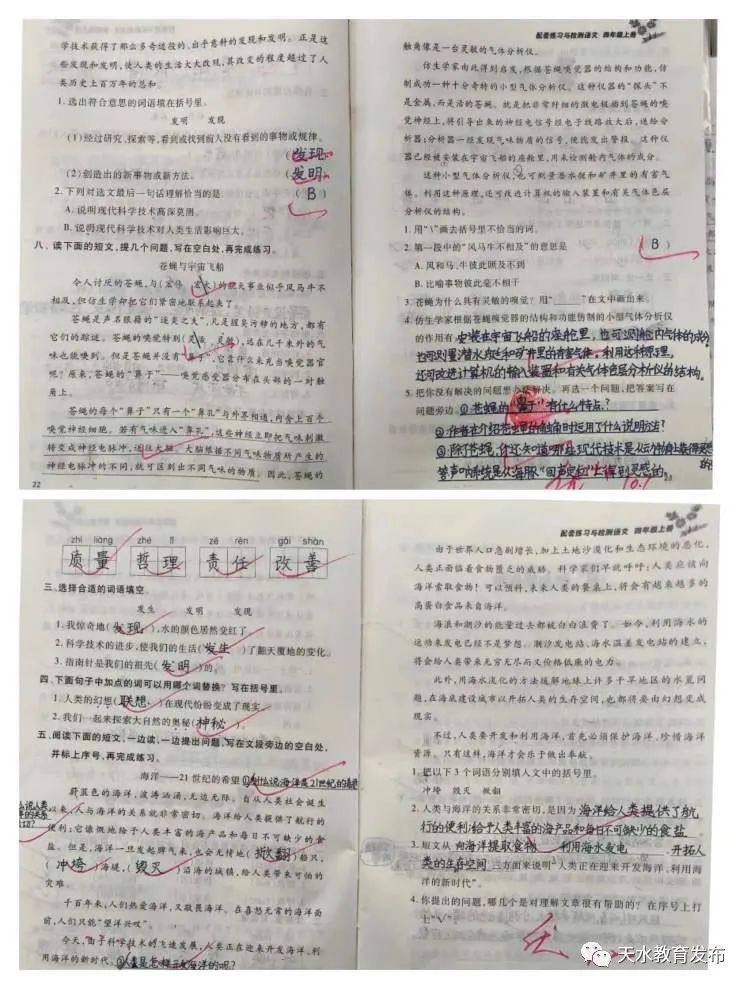 学技术获得了那么多奇迹般的、出乎意料的发现和发明。正是这
些发现和发明,使人类的生活大大改观,其改变的程度超过了人
类历史上百万年的总和。
1. 选出符合意思的词语填在括号里。
发明 发现
(1)经过研究、探索等,看到或找到前人没有看到的事物或规律。
(发现)
(2)创造出的新事物或新方法。 (发明)
2. 下列对选文最后一句话理解恰当的是 (B)
A. 说明现代科学技术高深莫测。
B. 说明现代科学技术对人类生活影响巨大。
八、读下面的短文,提几个问题,写在空白处,再完成练习。
苍蝇与宇宙飞船
令人讨厌的苍蝇,与(宏伟 宏大)的航天事业似乎风马牛不
相及,但仿生学却把它们紧密地联系起来了。
苍蝇是声名狼藉的“逐臭之夫”,凡是腥臭污秽的地方,都有
它们的踪迹。苍蝇的嗅觉特别(灵敏 灵敏),远在几千米外的气
味也能嗅到。但是苍蝇并没有“鼻子”,它靠什么来充当嗅觉器官
呢?原来,苍蝇的“鼻子”——嗅觉感受器分布在头部的一对触
角上。
苍蝇的每个“鼻子”只有一个“鼻孔”与外界相通,内含上百个
嗅觉神经细胞。若有气味进入“鼻孔”,这些神经立即把气味刺激
转变成神经电脉冲,送往大脑。大脑根据不同气味物质所产生的
神经电脉冲的不同,就可区别出不同气味的物质。因此,苍蝇的
22
配套练习与检测语文 四年级上册
触角像是一台灵敏的气体分析仪。
仿生学家由此得到启发,根据苍蝇嗅觉器的结构和功能,仿
制成功一种十分奇特的小型气体分析仪。这种仪器的“探头”不
是金属,而是活的苍蝇。就是把非常纤细的微电极插到苍蝇的嗅
觉神经上,将引导出来的神经电信号经电子线路放大后,送给分
析器;分析器一经发现气味物质的信号,便能发出警报。这种仪
器已经被安装在宇宙飞船的座舱里,用来检测舱内气体的成分。
这种小型气体分析仪,也可测量潜水艇和矿井里的有害气
体。利用这种原理,还可改进计算机的输入装置和有关气体色层
分析仪的结构。
1. 用“\”画去括号里不恰当的词。
2. 第一段中的“风马牛不相及”的意思是 (B)
A. 风和马、牛彼此顾及不到
B. 比喻事物彼此毫不相干
3. 苍蝇为什么具有灵敏的嗅觉?用“____”在文中画出来。
4. 仿生学家根据苍蝇嗅觉器的结构和功能仿制的小型气体分析仪
的作用有安装在宇宙飞船的座舱里,也可测舱内气体的成分
也可测量潜水艇和矿井里的有害气体,利用这种原理,
还可改进计算机的输入装置和有关气体色层分析仪的结构。
5. 把你没有解决的问题想办法解决。再选一个问题,把答案写在
问题旁边。①苍蝇的“鼻子”有什么特点?
②作者在介绍苍蝇的触角时运用了什么说明方法?
③除了苍蝇,你还知道哪些现代技术是从动物身上获得灵感
10.1
zhì liàng zhé lǐ zé rèn gǎi shàn
质量 哲理 责任 改善
三、选择合适的词语填空。
发生 发明 发现
1. 我惊奇地(发现),水的颜色居然变红了。
2. 科学技术的进步,使我们的生活(发生)了翻天覆地的变化。
3. 指南针是我们的祖先(发明)的。
四、下面句子中加点的词可以用哪个词替换?写在括号里。
1. 人类的幻想(联想)在现代纷纷变成了现实。
2. 我们一起来探索大自然的奥秘(神秘)。
五、阅读下面的短文,一边读,一边提出问题,写在文段旁边的空白处,
并标上序号,再完成练习。
海洋——21世纪的希望 ①为什么说海洋是21世纪的希望
蔚蓝色的海洋,波涛汹涌,无边无际。自从人类社会诞生
以来,人与海洋的关系就非常密切。海洋给人类提供了航行的
便利;它慷慨地给予人类丰富的海产品和每日不可缺少的食
盐。但是,海洋一旦发起脾气来,也会无情地(掀翻)船只,
(冲垮)海堤,(毁灭)沿海的城镇,给人类带来可怕的
灾难。
千百年来,人们热爱海洋,又敬畏海洋。在喜怒无常的海洋面
前,人们只能“望洋兴叹”。
今天,由于科学技术的飞速发展,人类正在迎来开发海洋、利
用海洋的新时代。
配套练习与检测语文 四年级上册
由于世界人口急剧增长,加上土地沙漠化和生态环境的恶化,
人类正面临着食物匮乏的威胁。科学家们早就呼吁:人类应该向
海洋索取食物!可以预料,未来人类的餐桌上,将会有越来越多的
高蛋白食品来自海洋。
海浪和潮汐的能量过去都被白白浪费了。如今,利用海水的
运动来发电已经不是梦想。潮汐发电站、海水温差发电站的建立,
将会给人类带来无穷无尽而又价格低廉的电力。
此外,用海水淡化的方法缓解地球上许多干旱地区的水荒问
题,在海底建设城市以开拓人类的生存空间,也都将要由幻想变成
现实。
不过,人类要开发和利用海洋,首先必须保护海洋、珍惜海洋
资源。只有这样,海洋才会乐于做出奉献。
1. 把以下3个词语分别填入文中的括号里。
冲垮 毁灭 掀翻
2. 人类与海洋的关系非常密切,是因为海洋给人类提供了航
行的便利;给予人类丰富的海产品和每日不可缺少的食盐
3. 短文从向海洋提取食物、利用海水发电、开拓人
类的生存空间三方面来说明“人类正在迎来开发海洋、利用海
洋的新时代”。
4. 你提出的问题,哪几个是对理解文章很有帮助的?在序号上打
上“√”。
优
天水教育发布